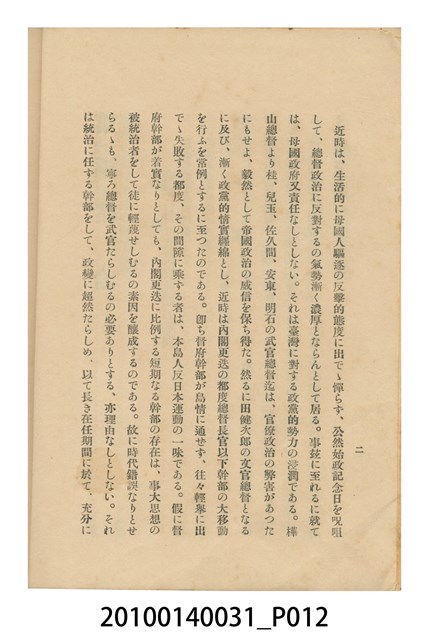 二
近時は、生活的に母國人驅逐の反擊的態度に出で憚らす、公然始政記念日を呪咀
して、總督政治に反對するの氣勢漸く濃厚とならんとして居る。事茲に至れるに就て
は、母國政府又責任なしとしない。それは臺灣に對する政黨的勢力の浸潤である。樺
山總督より桂、兒玉、佐久間、安東、明石の武官總督迄は、官僚政治の弊害があつた
にもせよ、毅然として帝國政治の威信を保ち得た。然るに田健次郎の文官總督となる
に及び、漸く政黨的情實纒綿とし、近時は內閣更迭の都度總督長官以下幹部の大移動
を行ふを常例とするに至つたのである。卽ち督府幹部が島情に通せず、往々輕擧に出
でゝ失敗する都度、その間隙に乘する者は、本島人反日本運動の一味である。假に督
府幹部が着實なりとしても、內閣更迭に比例する短期なる幹部の存在は、事大思想の
被統治者をして徒に輕蔑せしむるの素因を釀成するのである。故に時代錯誤なりとせ
らるゝも、寧ろ總督を武官たらしむるの必要ありとする、亦理由なしとしない。それ
は統治に任する幹部をして、政變に超然たらしめ、以て長き在任期間に於て、充分に
20100140031_P012